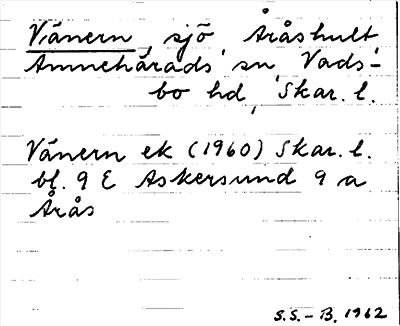 Vänern, sjö Åråshult
Amnehärads sn, Vads-
bo hd, Skar. l.
Vänern ek (1960) Skar. l.
bl. 9 E Askersund 9 a
Årås
S.S.-B. 1962